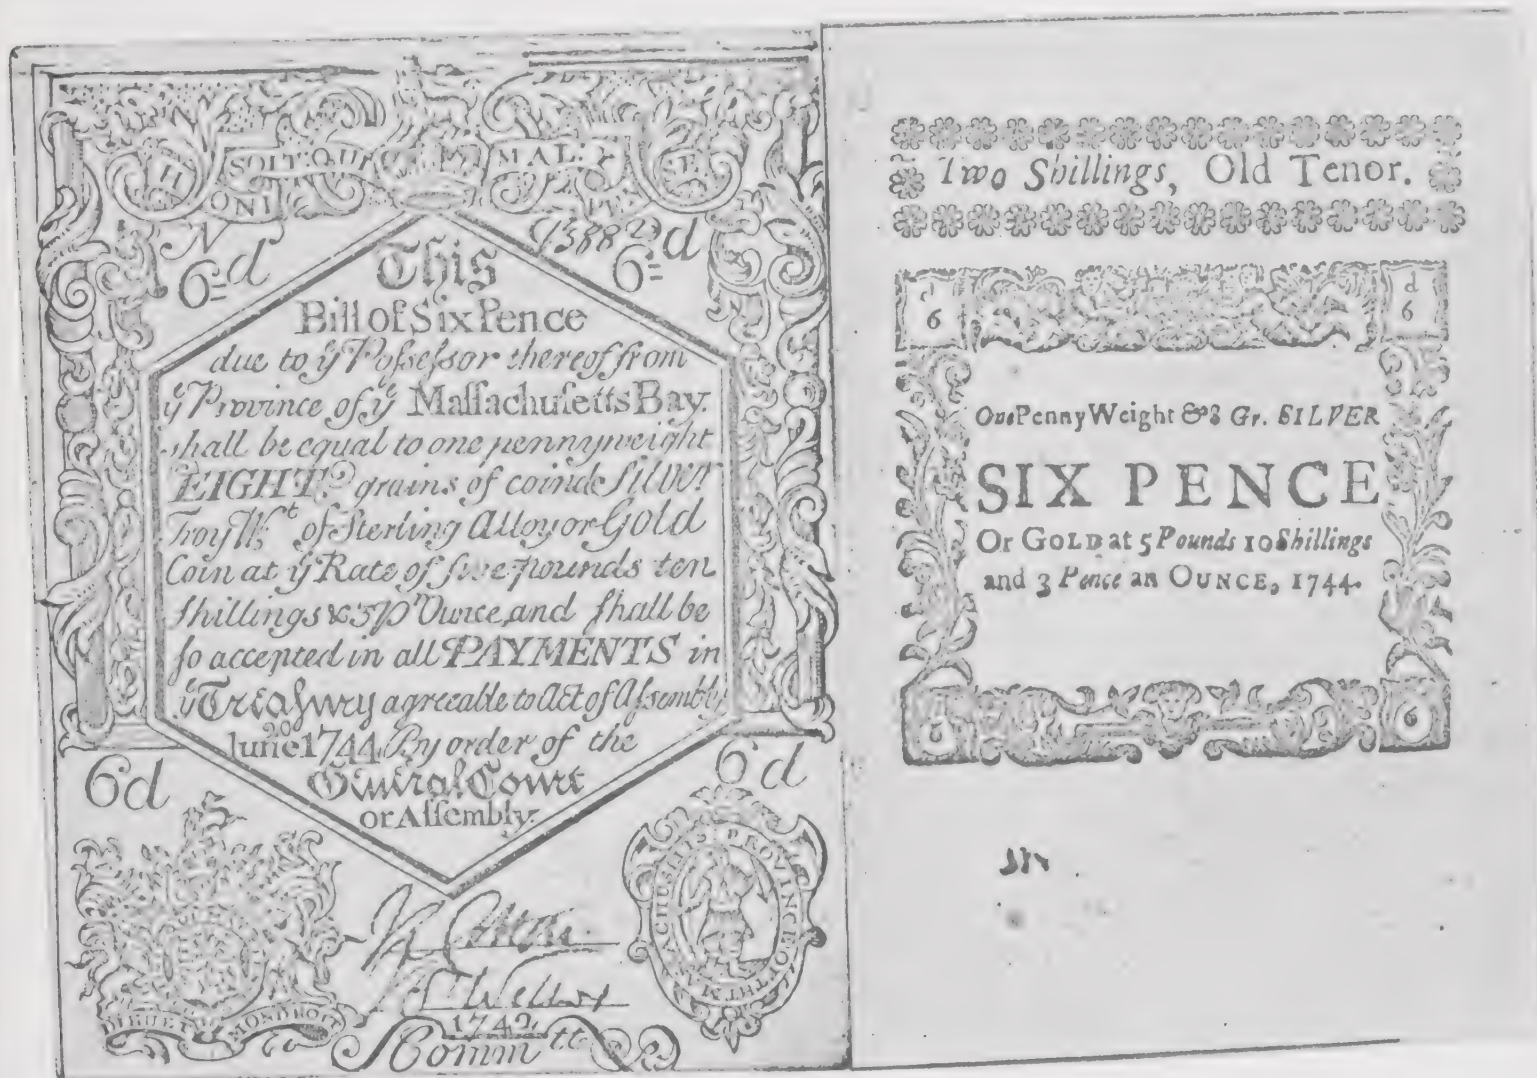 HONI SOIT QUI MAL Y SE
N
6d 6d
This
Bill of Six Pence
due to yͤ Poſſeſsor thereof from
yͤ Province of yͤ Maſſachuſetts Bay.
shall be equal to one pennyweight
EIGHT grains of coined Silver
Troy Wᵗ of Sterling Alloy or Gold
Coin at yͤ Rate of five pounds ten
ſhillings & 3 pʳ Ounce, and ſhall be
ſo accepted in all PAYMENTS in
yͤ Treaſury agreeable to Act of Aſsembly
June 20 1744. By order of the
General Court
or Aſſembly.
6d 6d
DIEU ET MON DROIT
MASSACHUSETTS PROVINCE OF THE
1742
Commᵗᵗ
Two Shillings, Old Tenor.
d
6
d
6
One Penny Weight & 8 Gr. SILVER
SIX PENCE
Or GOLD at 5 Pounds 10 Shillings
and 3 Pence an OUNCE, 1744.
6 6